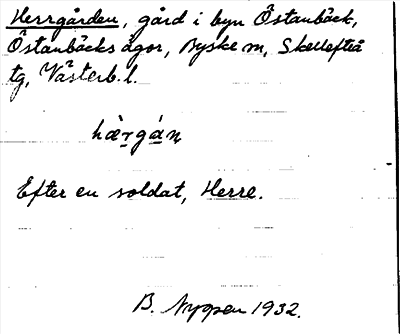 Herrgården, gård i byn Östanbäck,
Östanbäcks ägor, Byske sn, Skellefteå
tg, Västerb. l.
hæ̀rgán
Efter en soldat, Herre.
B. Nygren 1932.